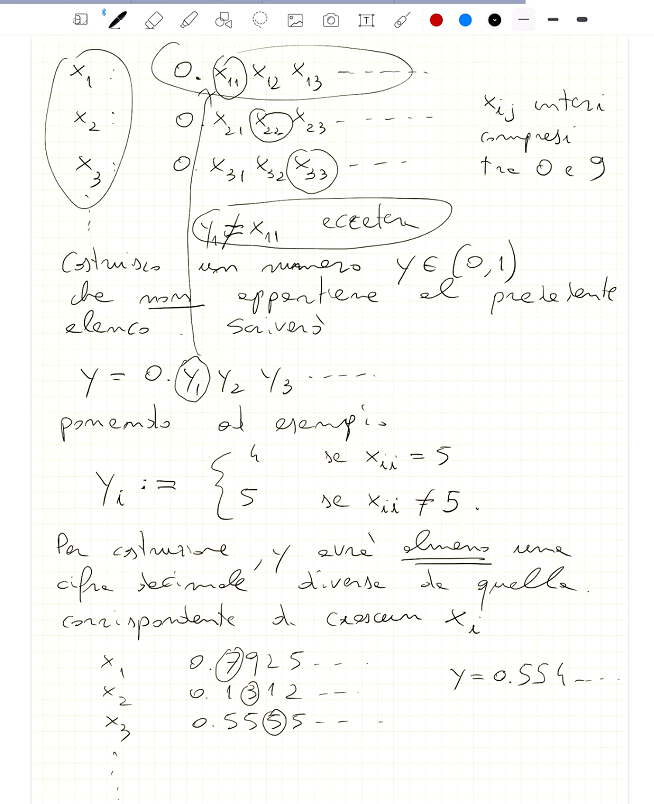 x₁ : 0. x₁₁ x₁₂ x₁₃ ------
x₂ : 0. x₂₁ x₂₂ x₂₃ ------
x₃ : 0. x₃₁ x₃₂ x₃₃ ----
xᵢⱼ interi
compresi
tra 0 e 9
y₁ ≠ x₁₁ eccetera
Costruisco un numero y ∈ (0,1)
che non appartiene al precedente
elenco. Scriverò
y = 0. y₁ y₂ y₃ -----
ponendo ad esempio
yᵢ := { 4 se xᵢᵢ = 5
5 se xᵢᵢ ≠ 5.
Per costruzione, y avrà almeno una
cifra decimale diversa da quella
corrispondente di ciascun xᵢ
x₁ 0.7925---
x₂ 0.1312---
x₃ 0.5555---
y = 0.554----